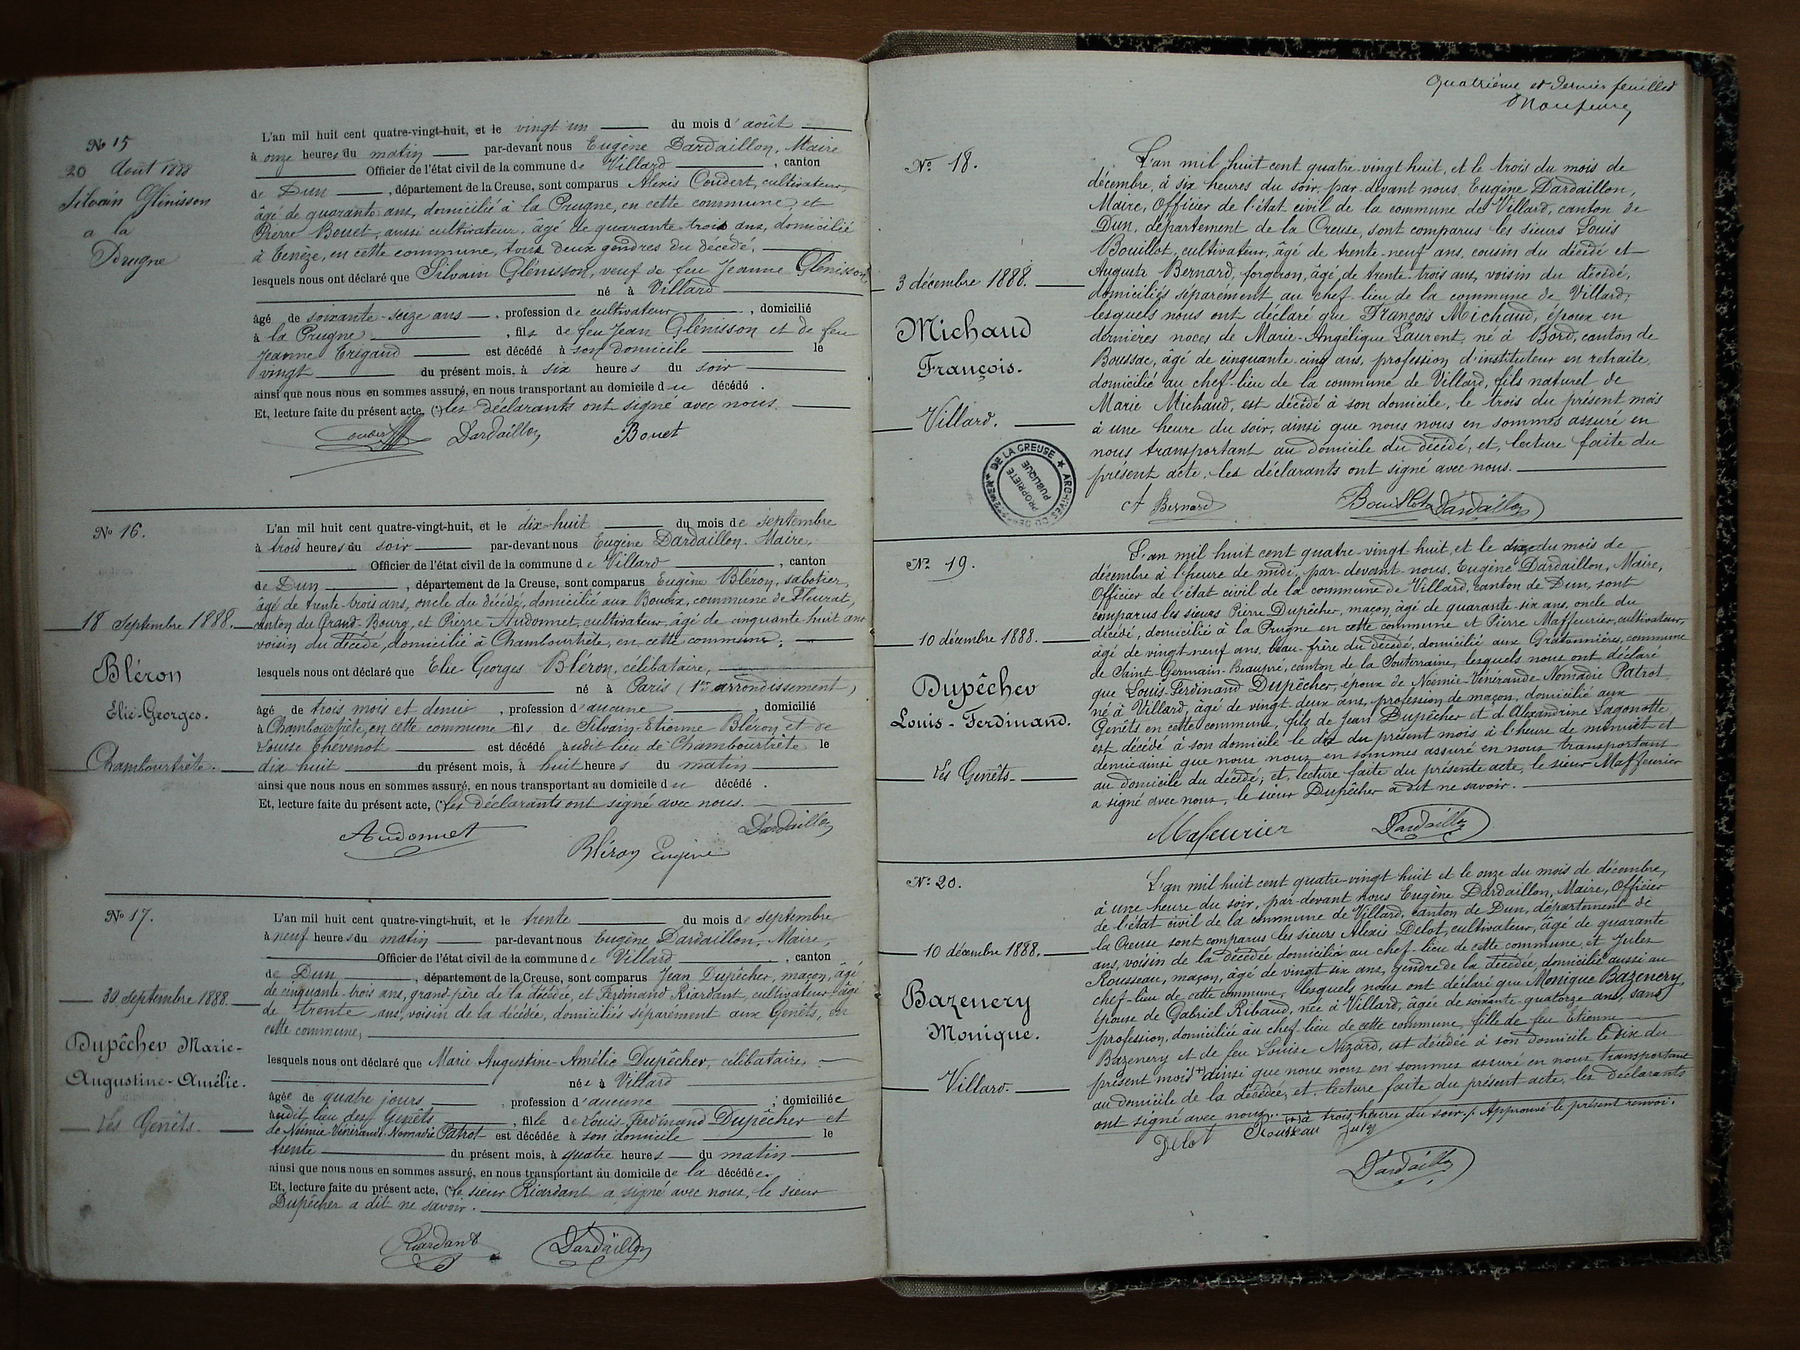 No 15
20 Août 1888
Silvain Glénisson
a la
Prugne
L'an mil huit cent quatre-vingt-huit, et le vingt un du mois d'août
à onze heures du matin par-devant nous Eugène Dardaillon, Maire
Officier de l'état civil de la commune de Villard, canton
de Dun, département de la Creuse, sont comparus Alexis Coudert, cultivateur,
âgé de quarante ans, domicilié à la Prugne, en cette commune, et
Pierre Bouet, aussi cultivateur, âgé de quarante trois ans, domicilié
à Cenèze, en cette commune, tous deux gendres du décédé,
lesquels nous ont déclaré que Silvain Glénisson, veuf de feu Jeanne Glénisson
né à Villard
âgé de soixante-seize ans, profession de cultivateur, domicilié
à la Prugne, fils de feu Jean Glénisson et de feu
Jeanne Trigaud est décédé à son domicile le
vingt du présent mois, à six heures du soir
ainsi que nous nous en sommes assuré, en nous transportant au domicile du décédé.
Et, lecture faite du présent acte, (*) les déclarants ont signé avec nous.
Coudert Dardaillon Bouet
No 16.
18 Septembre 1888.
Bléron
Elie-Georges.
Chambourtrète.
L'an mil huit cent quatre-vingt-huit, et le dix-huit du mois de septembre
à trois heures du soir par-devant nous Eugène Dardaillon, Maire,
Officier de l'état civil de la commune de Villard, canton
de Dun, département de la Creuse, sont comparus Eugène Bléron, sabotier,
âgé de trente-trois ans, oncle du décédé, domicilié aux Boueix, commune de Fleurat,
canton du Grand-Bourg, et Pierre Audonnet, cultivateur, âgé de cinquante huit ans
voisin du décédé, domicilié à Chambourtrète, en cette commune;
lesquels nous ont déclaré que Elie Georges Bléron, célibataire,
né à Paris (1er arrondissement)
âgé de trois mois et demie, profession d'aucune, domicilié
à Chambourtrète, en cette commune fils de Silvain-Etienne Bléron et de
Louise Thevenot est décédé audit lieu de Chambourtrète le
dix huit du présent mois, à huit heures du matin
ainsi que nous nous en sommes assuré, en nous transportant au domicile du décédé.
Et, lecture faite du présent acte, (*) les déclarants ont signé avec nous.
Audonnet Bléron Eugène Dardaillon
No 17.
30 septembre 1888.
Dupêcher Marie-
Augustine-Amélie.
Les Genêts.
L'an mil huit cent quatre-vingt-huit, et le trente du mois de septembre
à neuf heures du matin par-devant nous Eugène Dardaillon, Maire,
Officier de l'état civil de la commune de Villard, canton
de Dun, département de la Creuse, sont comparus Jean Dupêcher, maçon, âgé
de cinquante-trois ans, grand-père de la décédée, et Ferdinand Riardant, cultivateur âgé
de trente ans, voisin de la décédée, domiciliés séparément aux Genêts, en
cette commune,
lesquels nous ont déclaré que Marie-Augustine-Amélie Dupêcher, célibataire,
née à Villard
âgée de quatre jours, profession d'aucune, domiciliée
audit lieu des Genêts, fille de Louis-Ferdinand Dupêcher et
de Noémie-Vénérande-Nomadie Patrot est décédée à son domicile le
trente du présent mois, à quatre heures du matin
ainsi que nous nous en sommes assuré, en nous transportant au domicile de la décédée.
Et, lecture faite du présent acte, (*) le sieur Riardant a signé avec nous, le sieur
Dupêcher a dit ne savoir.
Riardant Dardaillon
Quatrième et dernier feuillet
No 18.
3 décembre 1888.
Michaud
François.
Villard.
L'an mil huit cent quatre-vingt huit, et le trois du mois de
décembre, à six heures du soir, par-devant nous, Eugène Dardaillon,
Maire, Officier de l'état civil de la commune de Villard, canton de
Dun, département de la Creuse, sont comparus les sieurs Louis
Bouillot, cultivateur, âgé de trente-neuf ans, cousin du décédé et
Auguste Bernard, forgeron, âgé de trente-trois ans, voisin du décédé,
domiciliés séparément au chef-lieu de la commune de Villard;
lesquels nous ont déclaré que François Michaud, époux en
dernières noces de Marie-Angélique Laurent, né à Bord, canton de
Boussac, âgé de cinquante cinq ans, profession d'instituteur en retraite,
domicilié au chef-lieu de la commune de Villard, fils naturel de
Marie Michaud, est décédé à son domicile, le trois du présent mois
à une heure du soir, ainsi que nous nous en sommes assuré en
nous transportant au domicile du décédé, et, lecture faite du
présent acte, les déclarants ont signé avec nous.
ARCHIVES DU DÉPARTEMENT DE LA CREUSE ★
PROPRIÉTÉ PUBLIQUE
A Bernard Bouillot Dardaillon
No 19.
10 décembre 1888.
Dupêcher
Louis-Ferdinand.
Les Genêts
L'an mil huit cent quatre-vingt huit, et le dix du mois de
décembre à l'heure de midi, par-devant nous, Eugène Dardaillon, Maire,
Officier de l'état civil de la commune de Villard, canton de Dun, sont
comparus les sieurs Pierre Dupêcher, maçon, âgé de quarante-six ans, oncle du
décédé, domicilié à la Prugne en cette commune et Pierre Maffeurier, cultivateur,
âgé de vingt-neuf ans, beau-frère du décédé, domicilié aux Gratonnières, commune
de Saint-Germain-Beaupré, canton de la Souterraine, lesquels nous ont déclaré
que Louis-Ferdinand Dupêcher, époux de Noémie-Vénérande-Nomadie Patrot,
né à Villard, âgé de vingt deux ans, profession de maçon, domicilié aux
Genêts en cette commune, fils de Jean Dupêcher et d'Alexandrine Lagonotte
est décédé à son domicile le dix du présent mois à l'heure de minuit et
demie ainsi que nous nous en sommes assuré en nous transportant
au domicile du décédé; et, lecture faite du présente acte, le sieur Maffeurier
a signé avec nous, le sieur Dupêcher a dit ne savoir.
Mafeurier Dardaillon
No 20.
10 décembre 1888.
Bazenery
Monique.
Villard.
L'an mil huit cent quatre-vingt huit et le onze du mois de décembre,
à une heure du soir, par-devant nous Eugène Dardaillon, Maire, Officier
de l'état civil de la commune de Villard, canton de Dun, département de
la Creuse sont comparus les sieurs Alexis Delot, cultivateur, âgé de quarante
ans, voisin de la décédée domicilié au chef-lieu de cette commune, et Jules
Rousseau, maçon, âgé de vingt-six ans, gendre de la décédée, domicilié aussi au
chef-lieu de cette commune, lesquels nous ont déclaré que Monique Bazenery,
épouse de Gabriel Ribaud, née à Villard, âgée de soixante-quatorze ans, sans
profession, domiciliée au chef-lieu de cette commune, fille de feu Etienne
Bazenery et de feu Louise Nizard, est décédée à son domicile le dix du
présent mois (+) ainsi que nous nous en sommes assuré en nous transportant
au domicile de la décédée, et lecture faite du présent acte, les déclarants
ont signé avec nous. (+) à trois heures du soir. Approuvé le présent renvoi.
Delot Rousseau July
Dardaillon